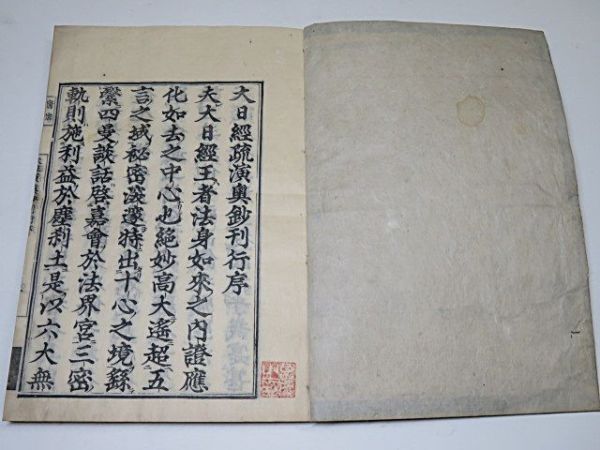 大日經疏演奧鈔刊行序
夫大日經王者法身如來之內證應
化如去之中心也絕妙高大遙超五
言之域祕密深邃特出十心之境緜
繫四曼談話啓嘉會於法界宮三密
軌則施利益於塵剎土是以六大無